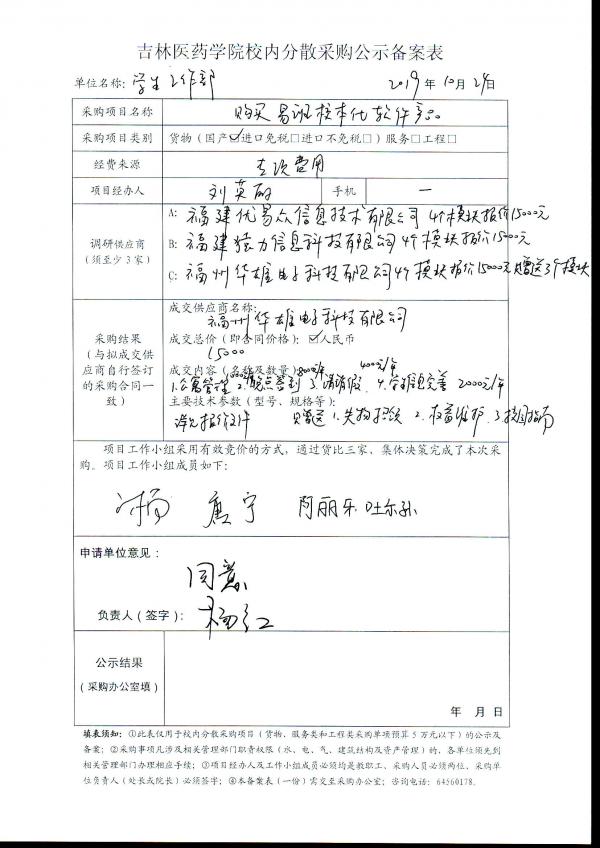 吉林医药学院校内分散采购公示备案表
单位名称：学生工作部 2019年10月24日
采购项目名称 购买易班校本化软件产品
采购项目类别 货物（国产☑进口免税□进口不免税□）服务□工程□
经费来源 专项费用
项目经办人 刘英丽 手机 一
调研供应商
（须至少3家）
A: 福建优易众信息技术有限公司 4个模块报价15000元
B: 福建猿力信息科技有限公司 4个模块报价15000元
C: 福州华雄电子科技有限公司 4个模块报价15000元且赠送3个模块
采购结果
（与拟成交供
应商自行签订
的采购合同一
致）
成交供应商名称：
福州华雄电子科技有限公司
成交总价（即合同价格）：☑人民币
15000
成交内容（名称及数量） 8000/年 4000元/年
1.公寓管理 2.晚点签到 3.请销假 4.学生信息完善 2000元/年
主要技术参数（型号、规格等）：
详见报价文件 且赠送 1.失物招领 2.权益维护 3.校园指南
项目工作小组采用有效竞价的方式，通过货比三家、集体决策完成了本次采
购。项目工作小组成员如下：
唐宁 阿丽乐吐尔孙
申请单位意见：
同意
负责人（签字）：杨红
公示结果
（采购办公室填）
年 月 日
填表须知：①此表仅用于校内分散采购项目（货物、服务类和工程类采购单项预算5万元以下）的公示及
备案；②采购事项凡涉及相关管理部门职责权限（水、电、气、建筑结构及资产管理）的，各单位须先到
相关管理部门办理相应手续；③项目经办人及工作小组成员必须均是教职工、采购人员必须两位，采购单
位负责人（处长或院长）必须签字；④本备案表（一份）需交至采购办公室；咨询电话：64560178。